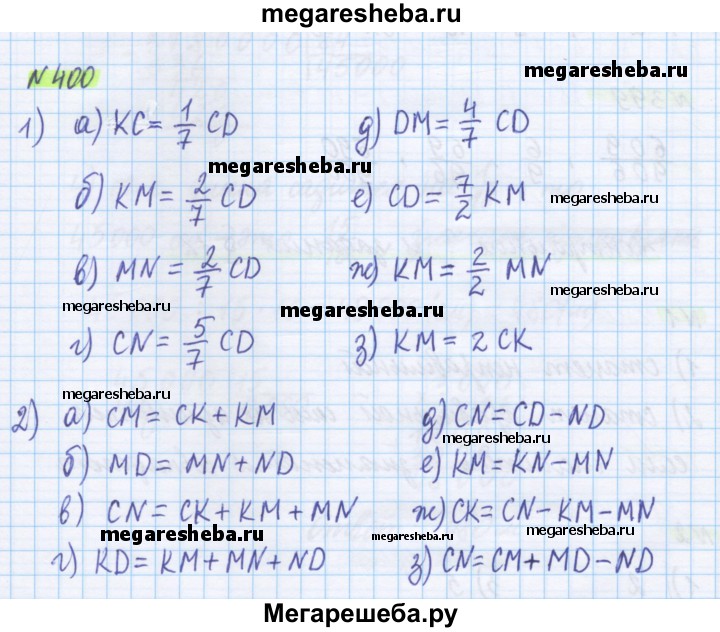 megaresheba.ru
N 400
megaresheba.ru
1) а) KC = 1/7 CD д) DM = 4/7 CD
megaresheba.ru
б) KM = 2/7 CD е) CD = 7/2 KM
megaresheba.ru
в) MN = 2/7 CD ж) KM = 2/2 MN
megaresheba.ru megaresheba.ru
г) CN = 5/7 CD з) KM = 2 CK
megaresheba.ru
2) а) CM = CK + KM д) CN = CD - ND
megaresheba.ru
б) MD = MN + ND е) KM = KN - MN
в) CN = CK + KM + MN ж) CK = CN - KM - MN
megaresheba.ru megaresheba.ru megaresheba.ru
г) KD = KM + MN + ND з) CN = CM + MD - ND
Мегарешеба.ру